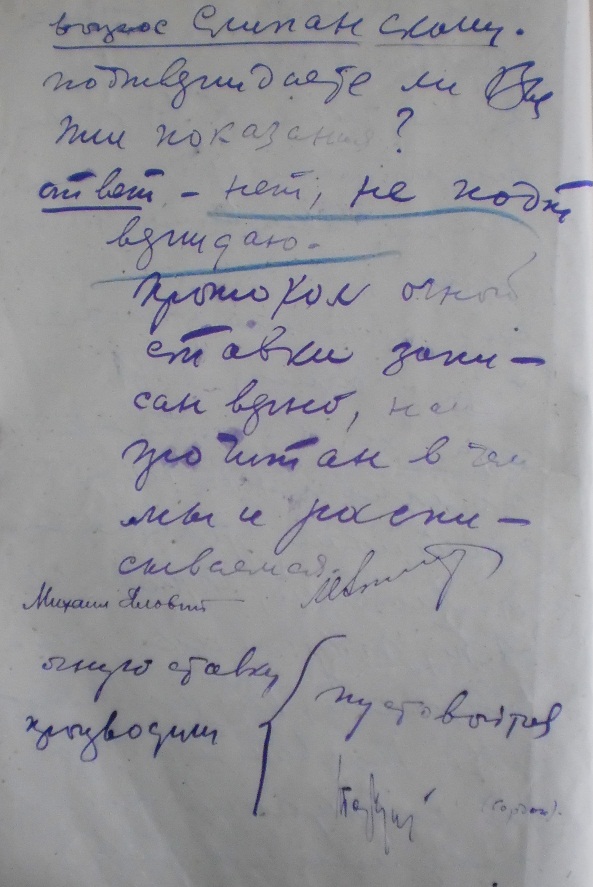 вопрос Слипанскому.
подтверждаете ли Вы
эти показания?
ответ – нет, не подт
верждаю.
Протокол очной
ставки запи-
сан верно, нам
прочитан в чем
мы и распи-
сываемся.
Михаил
очную ставку
производили